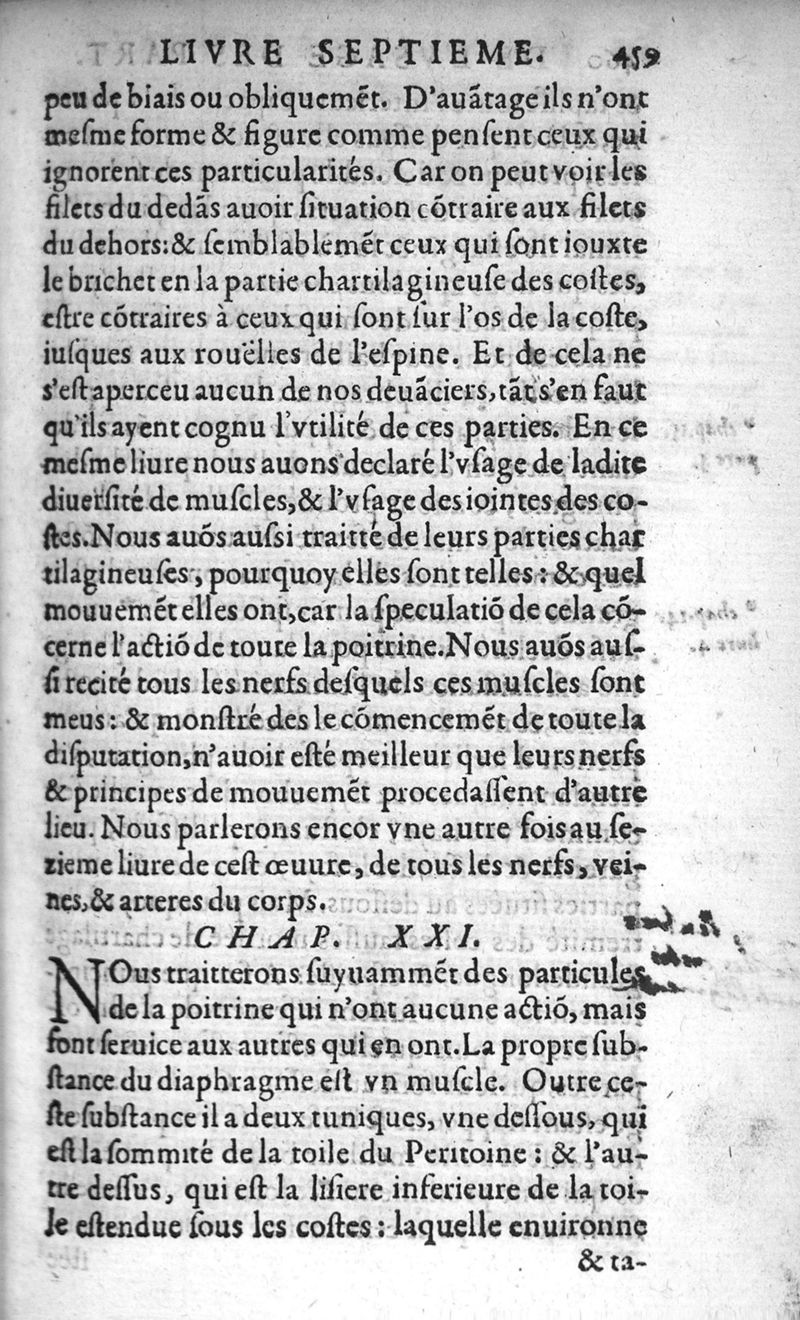 LIVRE SEPTIEME. 459
peu de biais ou obliquemẽt. D'auãtage ils n'ont
meſme forme & figure comme penſent ceux qui
ignorent ces particularités. Car on peut voir les
filets du dedãs auoir ſituation cõtraire aux filets
du dehors: & ſemblablemẽt ceux qui ſont iouxte
le brichet en la partie chartilagineuſe des coſtes,
eſtre cõtraires à ceux qui ſont ſur l'os de la coſte,
iuſques aux rouëlles de l'eſpine. Et de cela ne
s'eſt aperceu aucun de nos deuãciers, tãt s'en faut
qu'ils ayent cognu l'vtilité de ces parties. En ce
meſme liure nous auons declaré l'vſage de ladite
diuerſité de muſcles, & l'vſage des iointes des co-
ſtes. Nous auõs auſsi traitté de leurs parties char
tilagineuſes, pourquoy elles ſont telles: & quel
mouuemẽt elles ont, car la ſpeculatiõ de cela cõ-
cerne l'actiõ de toute la poitrine. Nous auõs auſ-
ſi recité tous les nerfs deſquels ces muſcles ſont
meus: & monſtré des le cõmencemẽt de toute la
diſputation, n'auoir eſté meilleur que leurs nerfs
& principes de mouuemẽt procedaſſent d'autre
lieu. Nous parlerons encor vne autre fois au ſe-
zieme liure de ceſt œuure, de tous les nerfs, vei-
nes, & arteres du corps.
CHAP. XXI.
NOus traitterons ſuyuammẽt des particules
de la poitrine qui n'ont aucune actiõ, mais
font ſeruice aux autres qui en ont. La propre ſub-
ſtance du diaphragme eſt vn muſcle. Outre ce-
ſte ſubſtance il a deux tuniques, vne deſſous, qui
eſt la ſommité de la toile du Peritoine: & l'au-
tre deſſus, qui eſt la liſiere inferieure de la toi-
le eſtendue ſous les coſtes: laquelle enuironne
& ta-